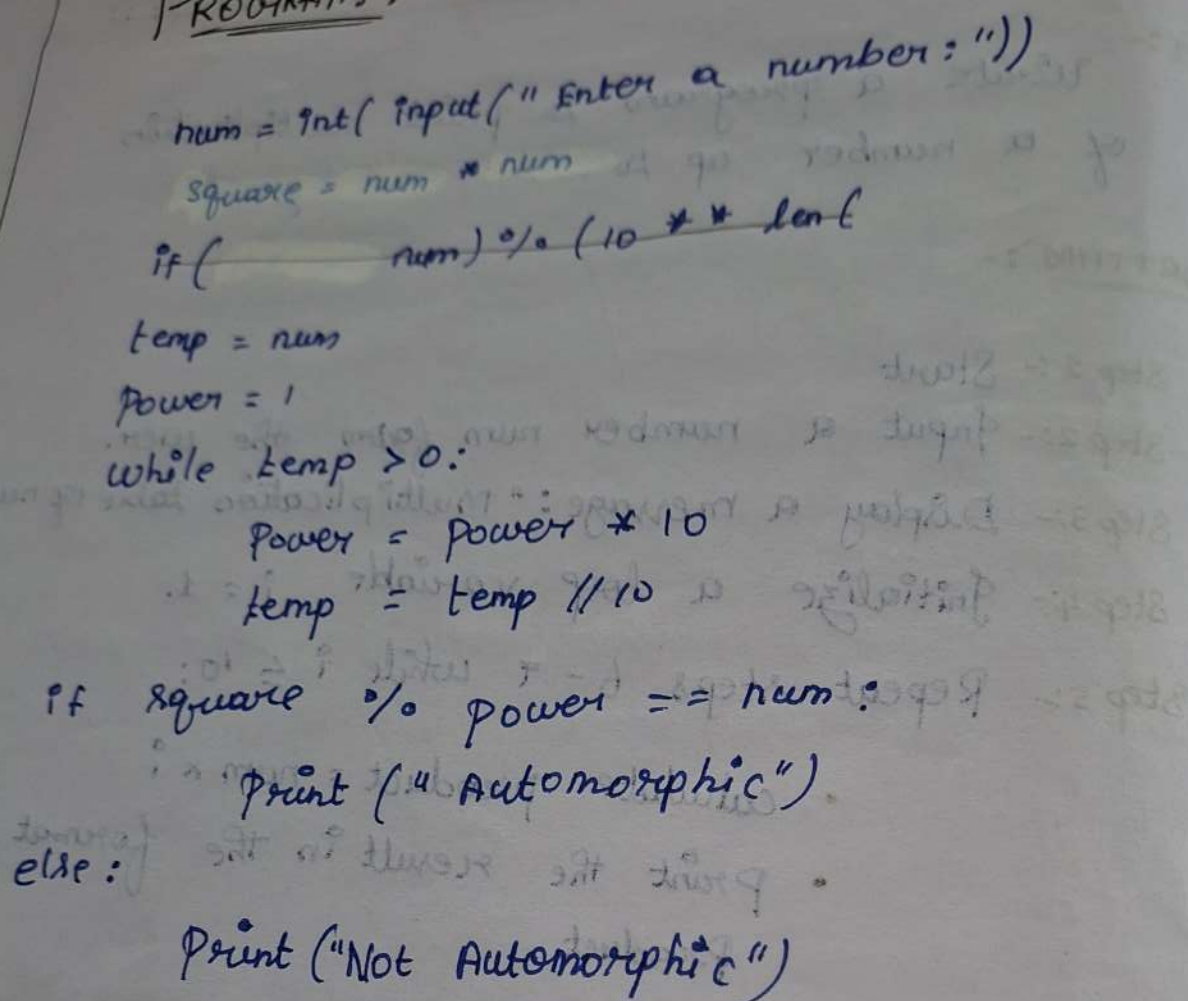 PROGRAM:
num = int( input(" Enter a number : "))
square = num * num
if( num) % (10 ** len(
temp = num
Power = 1
while temp > 0:
Power = Power * 10
temp = temp // 10
if square % power == num :
Print (" Automorphic")
else :
Print ("Not Automorphic")